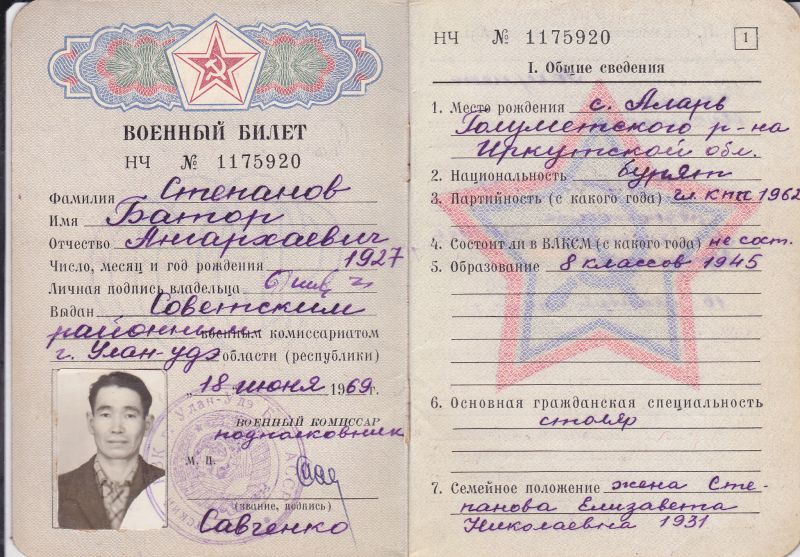 ВОЕННЫЙ БИЛЕТ
НЧ № 1175920
Фамилия Степанов
Имя Батор
Отчество Ангархаевич
Число, месяц и год рождения 1927
Личная подпись владельца
Выдан Советским
районным военным комиссариатом
г. Улан-удэ области (республики)
„18 июня 1969 г.
ВОЕННЫЙ КОМИССАР
подполковник
М. П.
(звание, подпись)
Савченко
НЧ № 1175920
1
I. Общие сведения
1. Место рождения с. Аларь
Голуметского р-на
Иркутской обл.
2. Национальность бурят
3. Партийность (с какого года) чл. КПСС 1962
4. Состоит ли в ВЛКСМ (с какого года) не сост.
5. Образование 8 классов 1945
6. Основная гражданская специальность
столяр
7. Семейное положение жена Сте-
панова Елизавета
Николаевна 1931